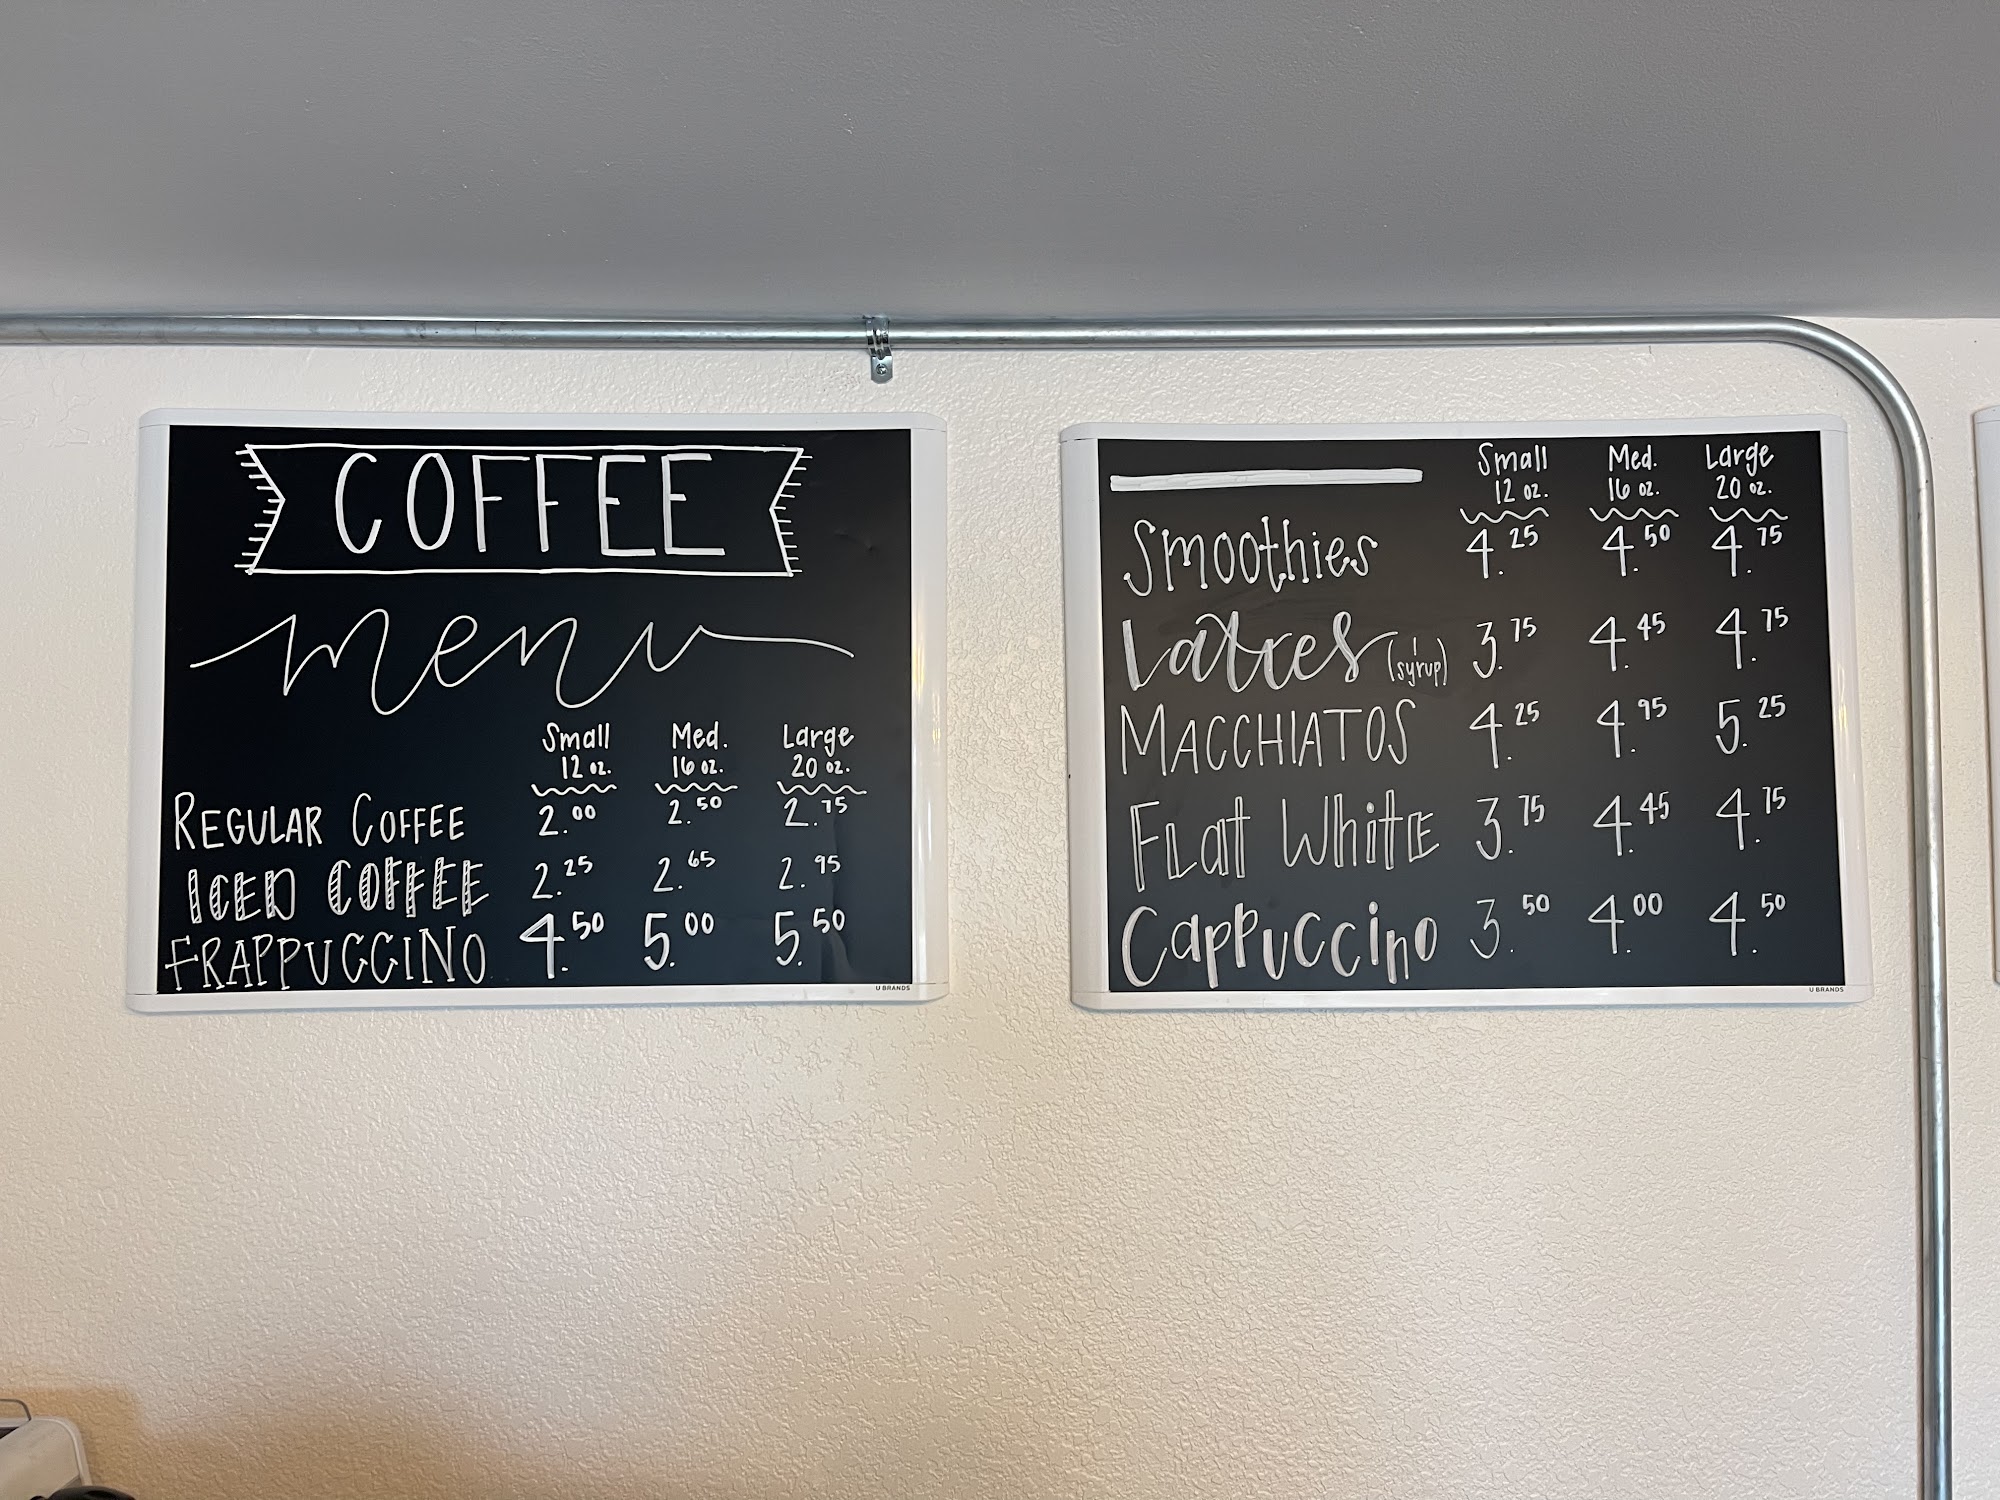 COFFEE
menu
Small Med. Large
12 oz. 16 oz. 20 oz.
REGULAR COFFEE 2.00 2.50 2.75
ICED COFFEE 2.25 2.65 2.95
FRAPPUCCINO 4.50 5.00 5.50
U BRANDS
Small Med. Large
12 oz. 16 oz. 20 oz.
Smoothies 4.25 4.50 4.75
Lattes (1 syrup) 3.75 4.45 4.75
MACCHIATOS 4.25 4.95 5.25
FLat WhitE 3.75 4.45 4.75
Cappuccino 3.50 4.00 4.50
U BRANDS